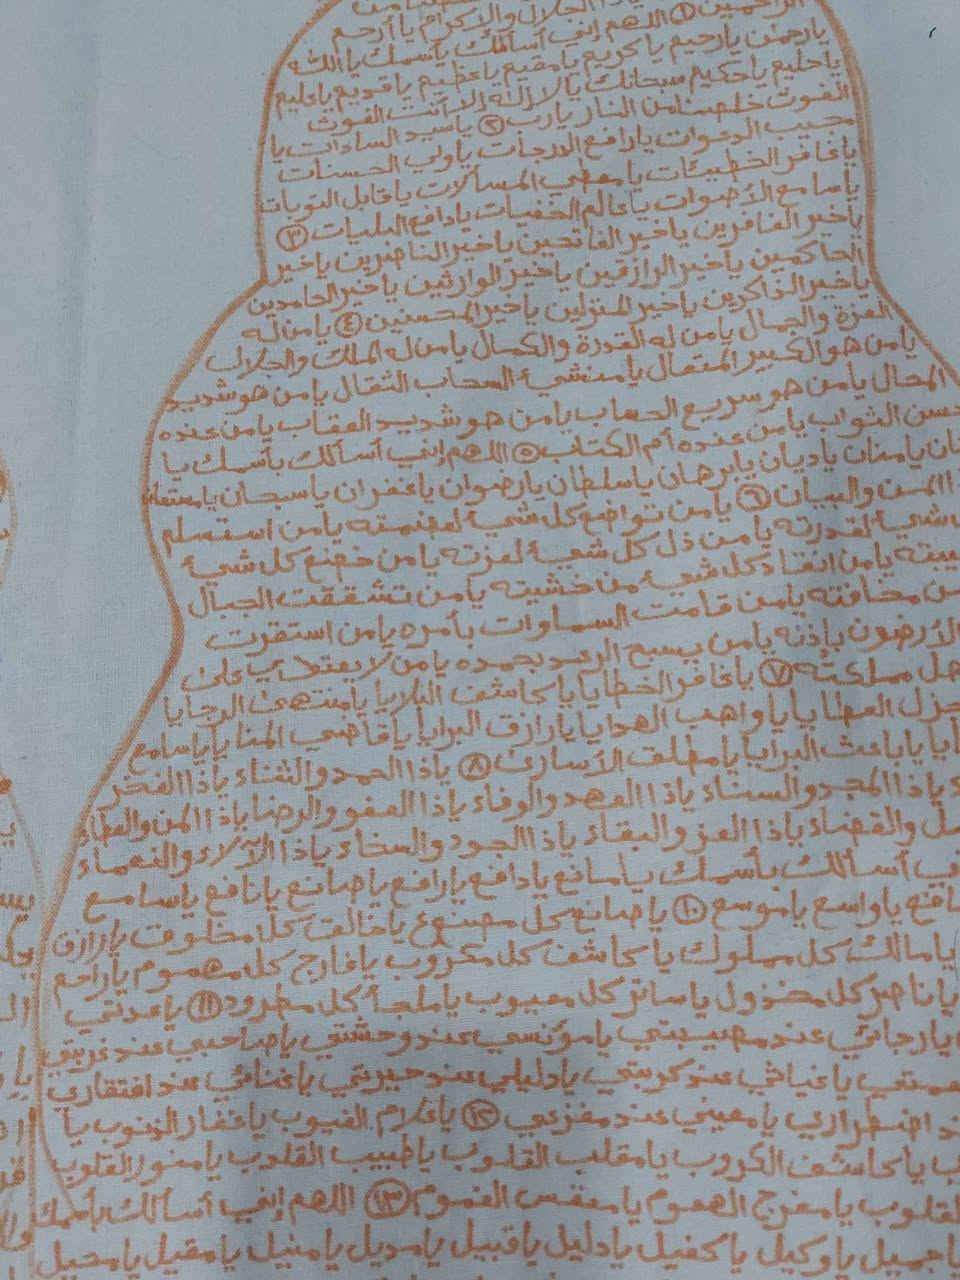 الجلال والإكرام يا أرحم
الراحمين ١ اللهم إني أسألك بأسمك يا الله
يارحمن يارحيم ياكريم يامقيم ياعظيم ياقديم ياعليم
ياحليم ياحكيم سبحانك يالا إله إلا أنت الغوث
الغوث خلصنا من النار يارب ٢ ياسيد السادات يا
مجيب الدعوات يارافع الدرجات ياولي الحسنات
ياغافر الخطيئات يامعطي المسألات ياقابل التوبات
ياسامع الأصوات ياعالم الخفيات يادافع البليات ٣
ياخير الغافرين ياخير الفاتحين ياخير الناصرين ياخير
الحاكمين ياخير الرازقين ياخير الوارثين ياخير الحامدين
ياخير الذاكرين ياخير المنزلين ياخير المحسنين ٤ يامن له
العزة والجمال يامن له القدرة والكمال يامن له الملك والجلال
يامن هو الكبير المتعال يامنشيء السحاب الثقال يامن هو شديد
المحال يامن هو سريع الحساب يامن هو شديد العقاب يامن عنده
حسن الثواب يامن عنده أم الكتاب ٥ اللهم إني أسألك بأسمك يا
يامنان ياديان يابرهان ياسلطان يارضوان ياغفران ياسبحان يامستعان
المن والبيان ٦ يامن تواضع كل شيء لعظمته يامن استسلم
شيء لقدرته يامن ذل كل شيء لعزته يامن خضع كل شيء
يامن انقاد كل شيء من خشيته يامن تشققت الجبال
من مخافته يامن قامت السماوات بأمره يامن استقرت
الأرضون بإذنه يامن يسبح الرعد بحمده يامن لا يعتدي على
مملكته ٧ ياغافر الخطايا ياكاشف البلايا يامنتهى الرجايا
يامجزل العطايا ياواهب الهدايا يارازق البرايا ياقاضي المنايا ياسامع
ياباعث البرايا يامطلق الأسارى ٨ ياذا الحمد والثناء ياذا الفخر
ياذا المجد والسناء ياذا العهد والوفاء ياذا العفو والرضا ياذا المن والعطاء
والقضاء ياذا العز والبقاء ياذا الجود والسخاء ياذا الآلاء والنعماء
أسألك بأسمك يامانع يادافع يارافع ياصانع يانافع ياسامع
ياواسع ياموسع ١٠ ياصانع كل مصنوع ياخالق كل مخلوق يارازق
يامالك كل مملوك ياكاشف كل مكروب يافارج كل مهموم ياراحم
ياناصر كل مخذول ياساتر كل معيوب ياملجأ كل مطرود ١١ ياعدتي
يارجائي عند مصيبتي يامؤنسي عند وحشتي ياصاحبي عند غربتي
ياغياثي عند كربتي يادليلي عند حيرتي ياغنائي عند افتقاري
اضطراري يامعيني عند مفزعي ١٢ ياعلام الغيوب ياغفار الذنوب يا
ياكاشف الكروب يامقلب القلوب ياطبيب القلوب يامنور القلوب
القلوب يامفرج الهموم يامنفس الغموم ١٣ اللهم إني أسألك بأسمك
ياجميل ياوكيل ياكفيل يادليل ياقبيل يامديل يامنيل يامقيل يامحيل